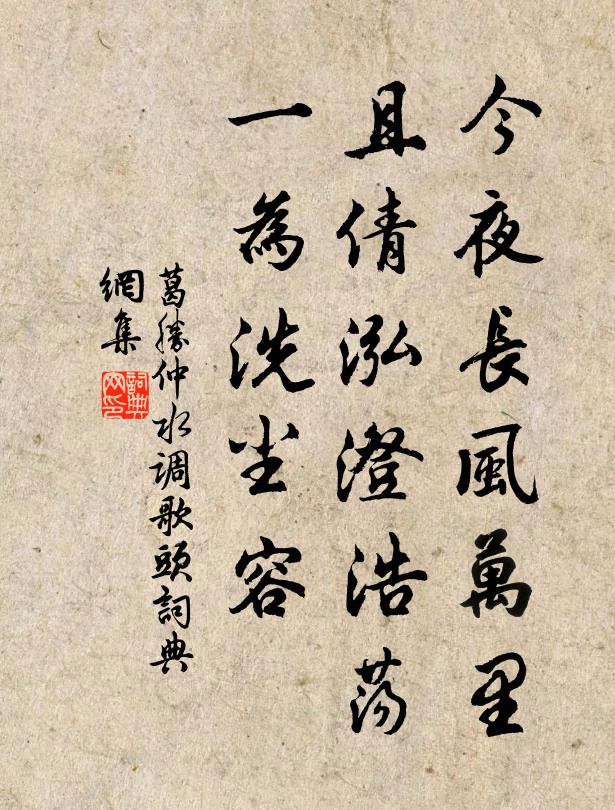 今夜長風萬里
且倩泓澄浩蕩
一為洗尘容
葛勝仲水调歌頭詞典
網集
詞典
网印